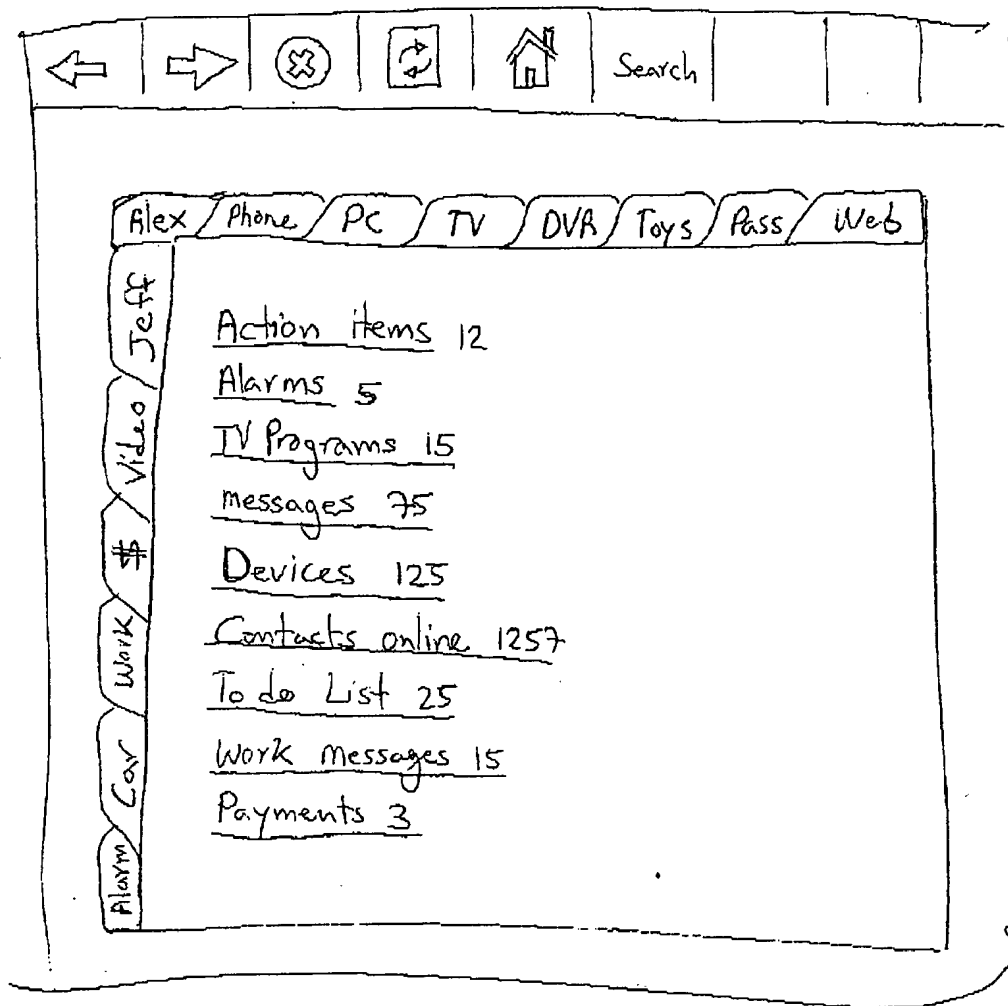 Search
Alex Phone PC TV DVR Toys Pass Web
Jeff
Video
$
Work
Car
Alarm
Action items 12
Alarms 5
TV Programs 15
messages 75
Devices 125
Contacts online 1257
To do List 25
Work messages 15
Payments 3